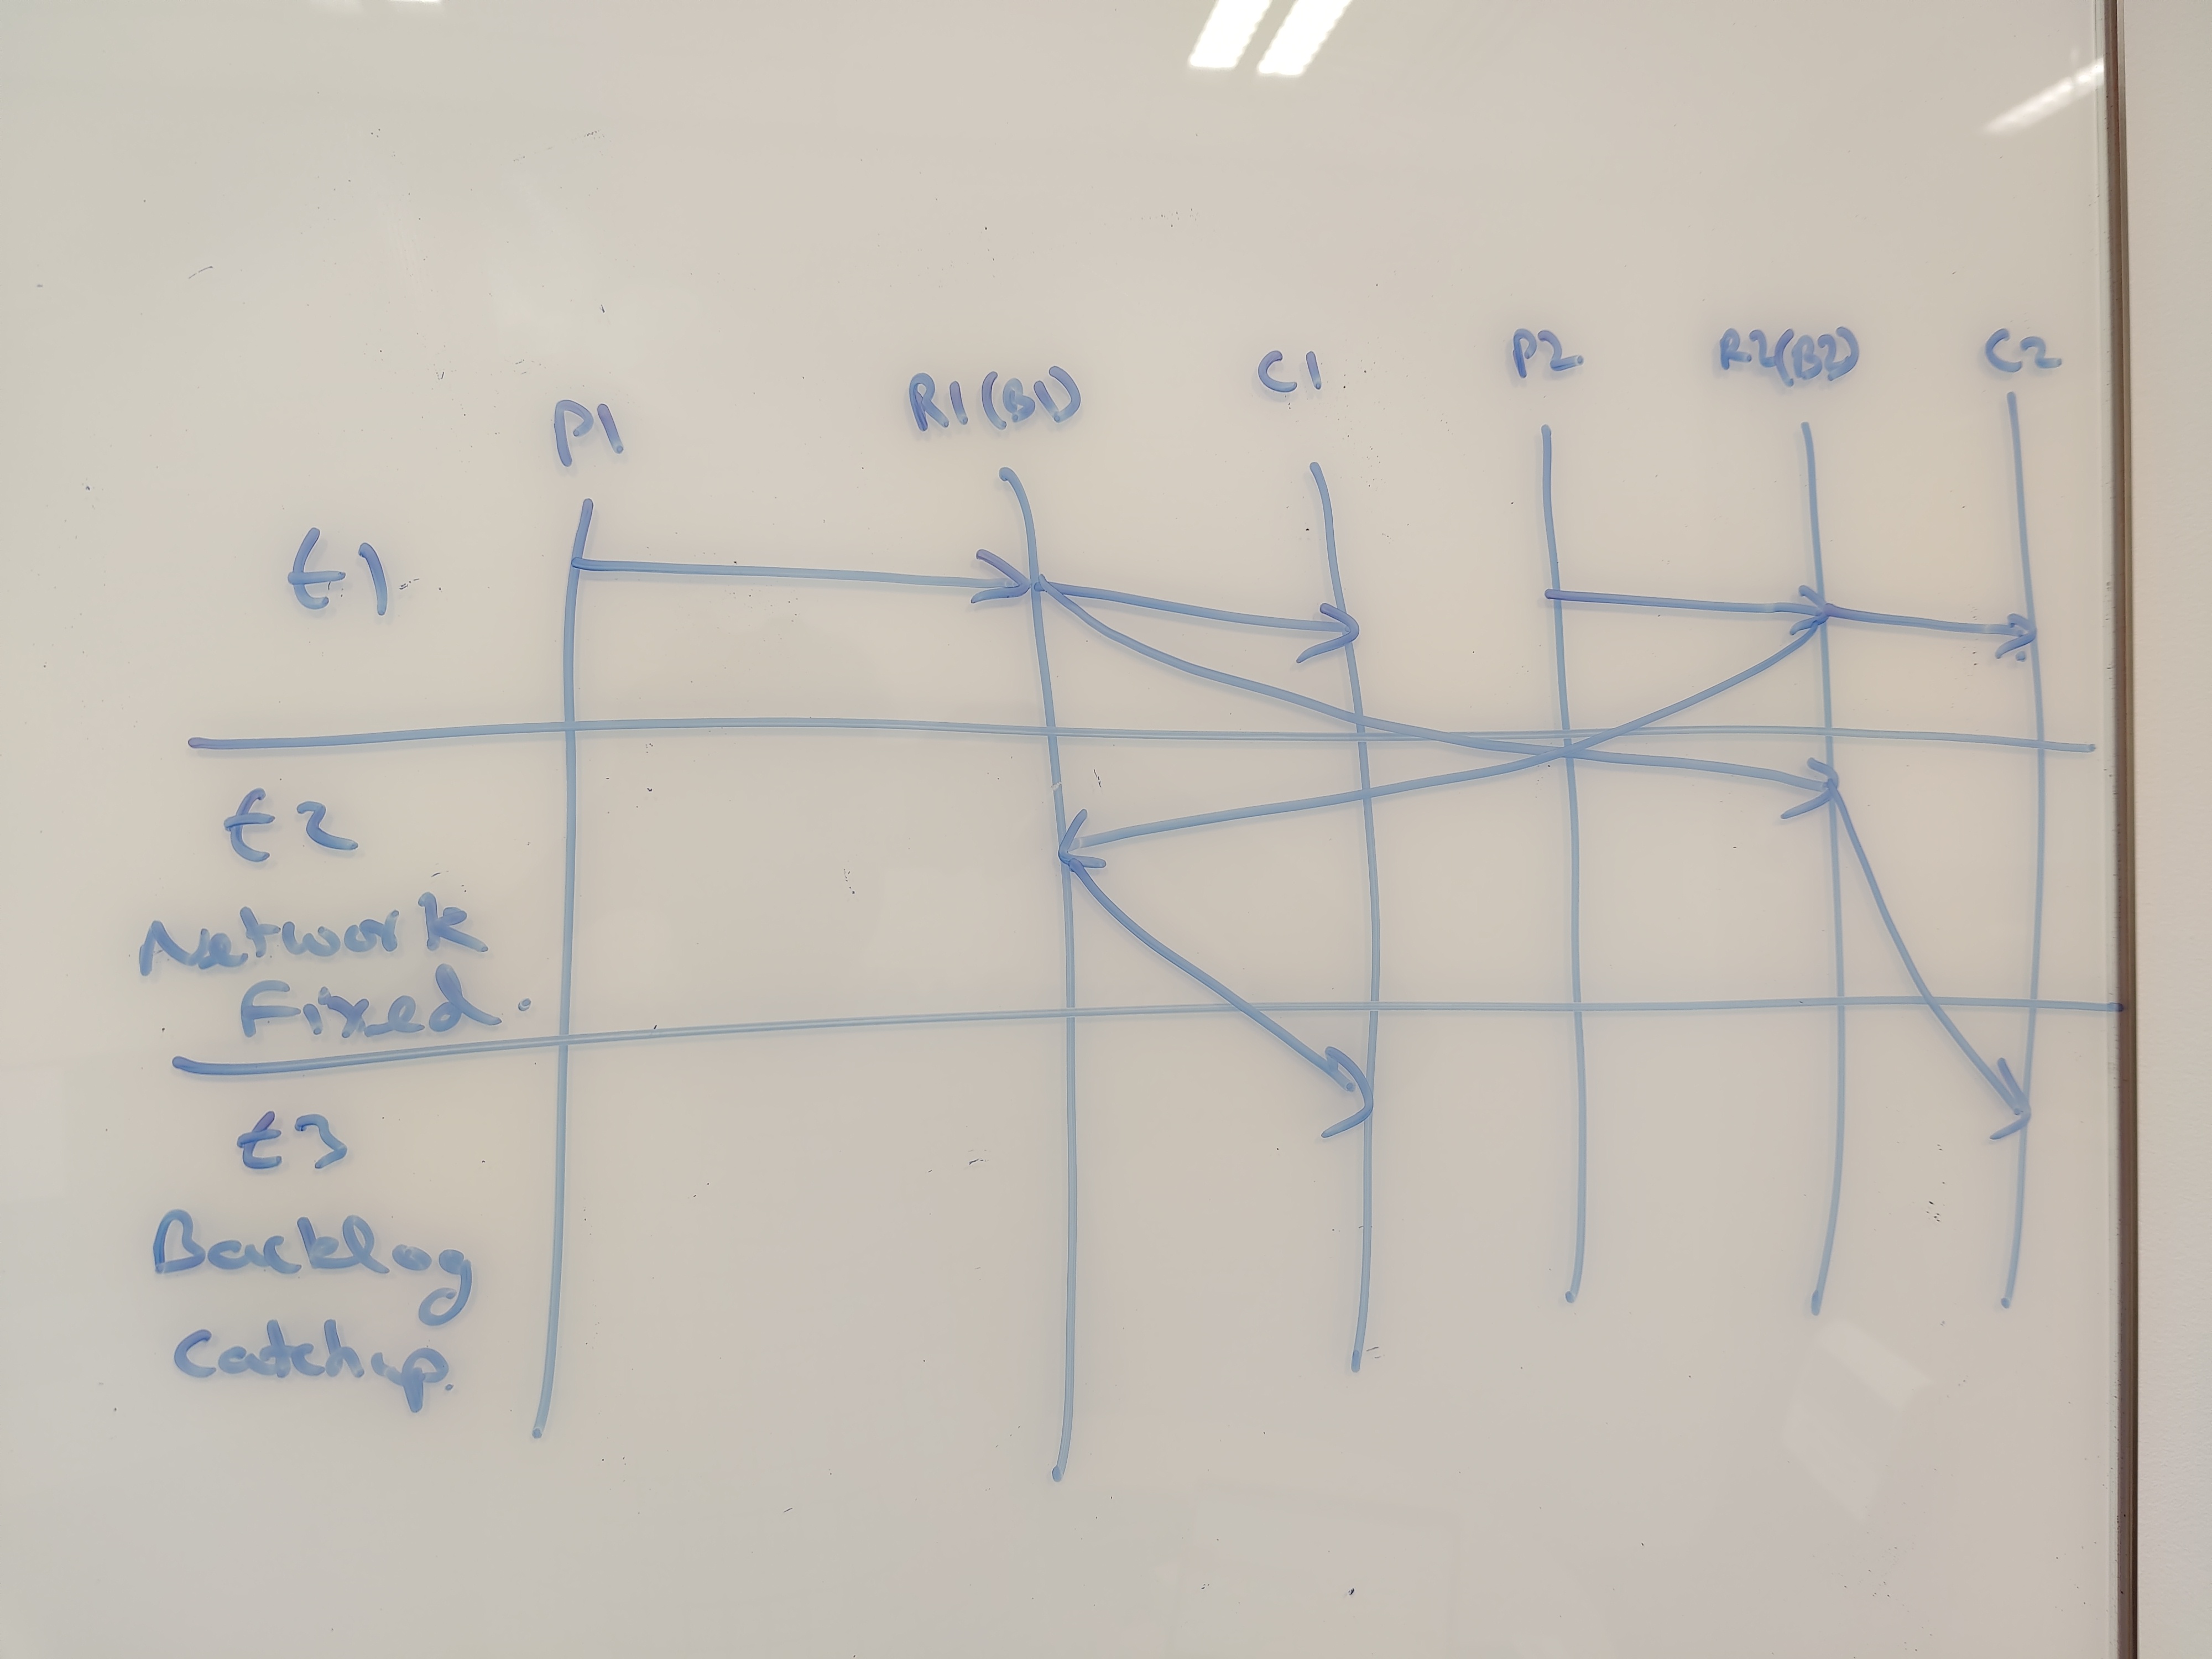 P1 R1(B1) C1 P2 R2(B2) C2
t1
t2
Network
Fixed.
t3
Backlog
Catchup.